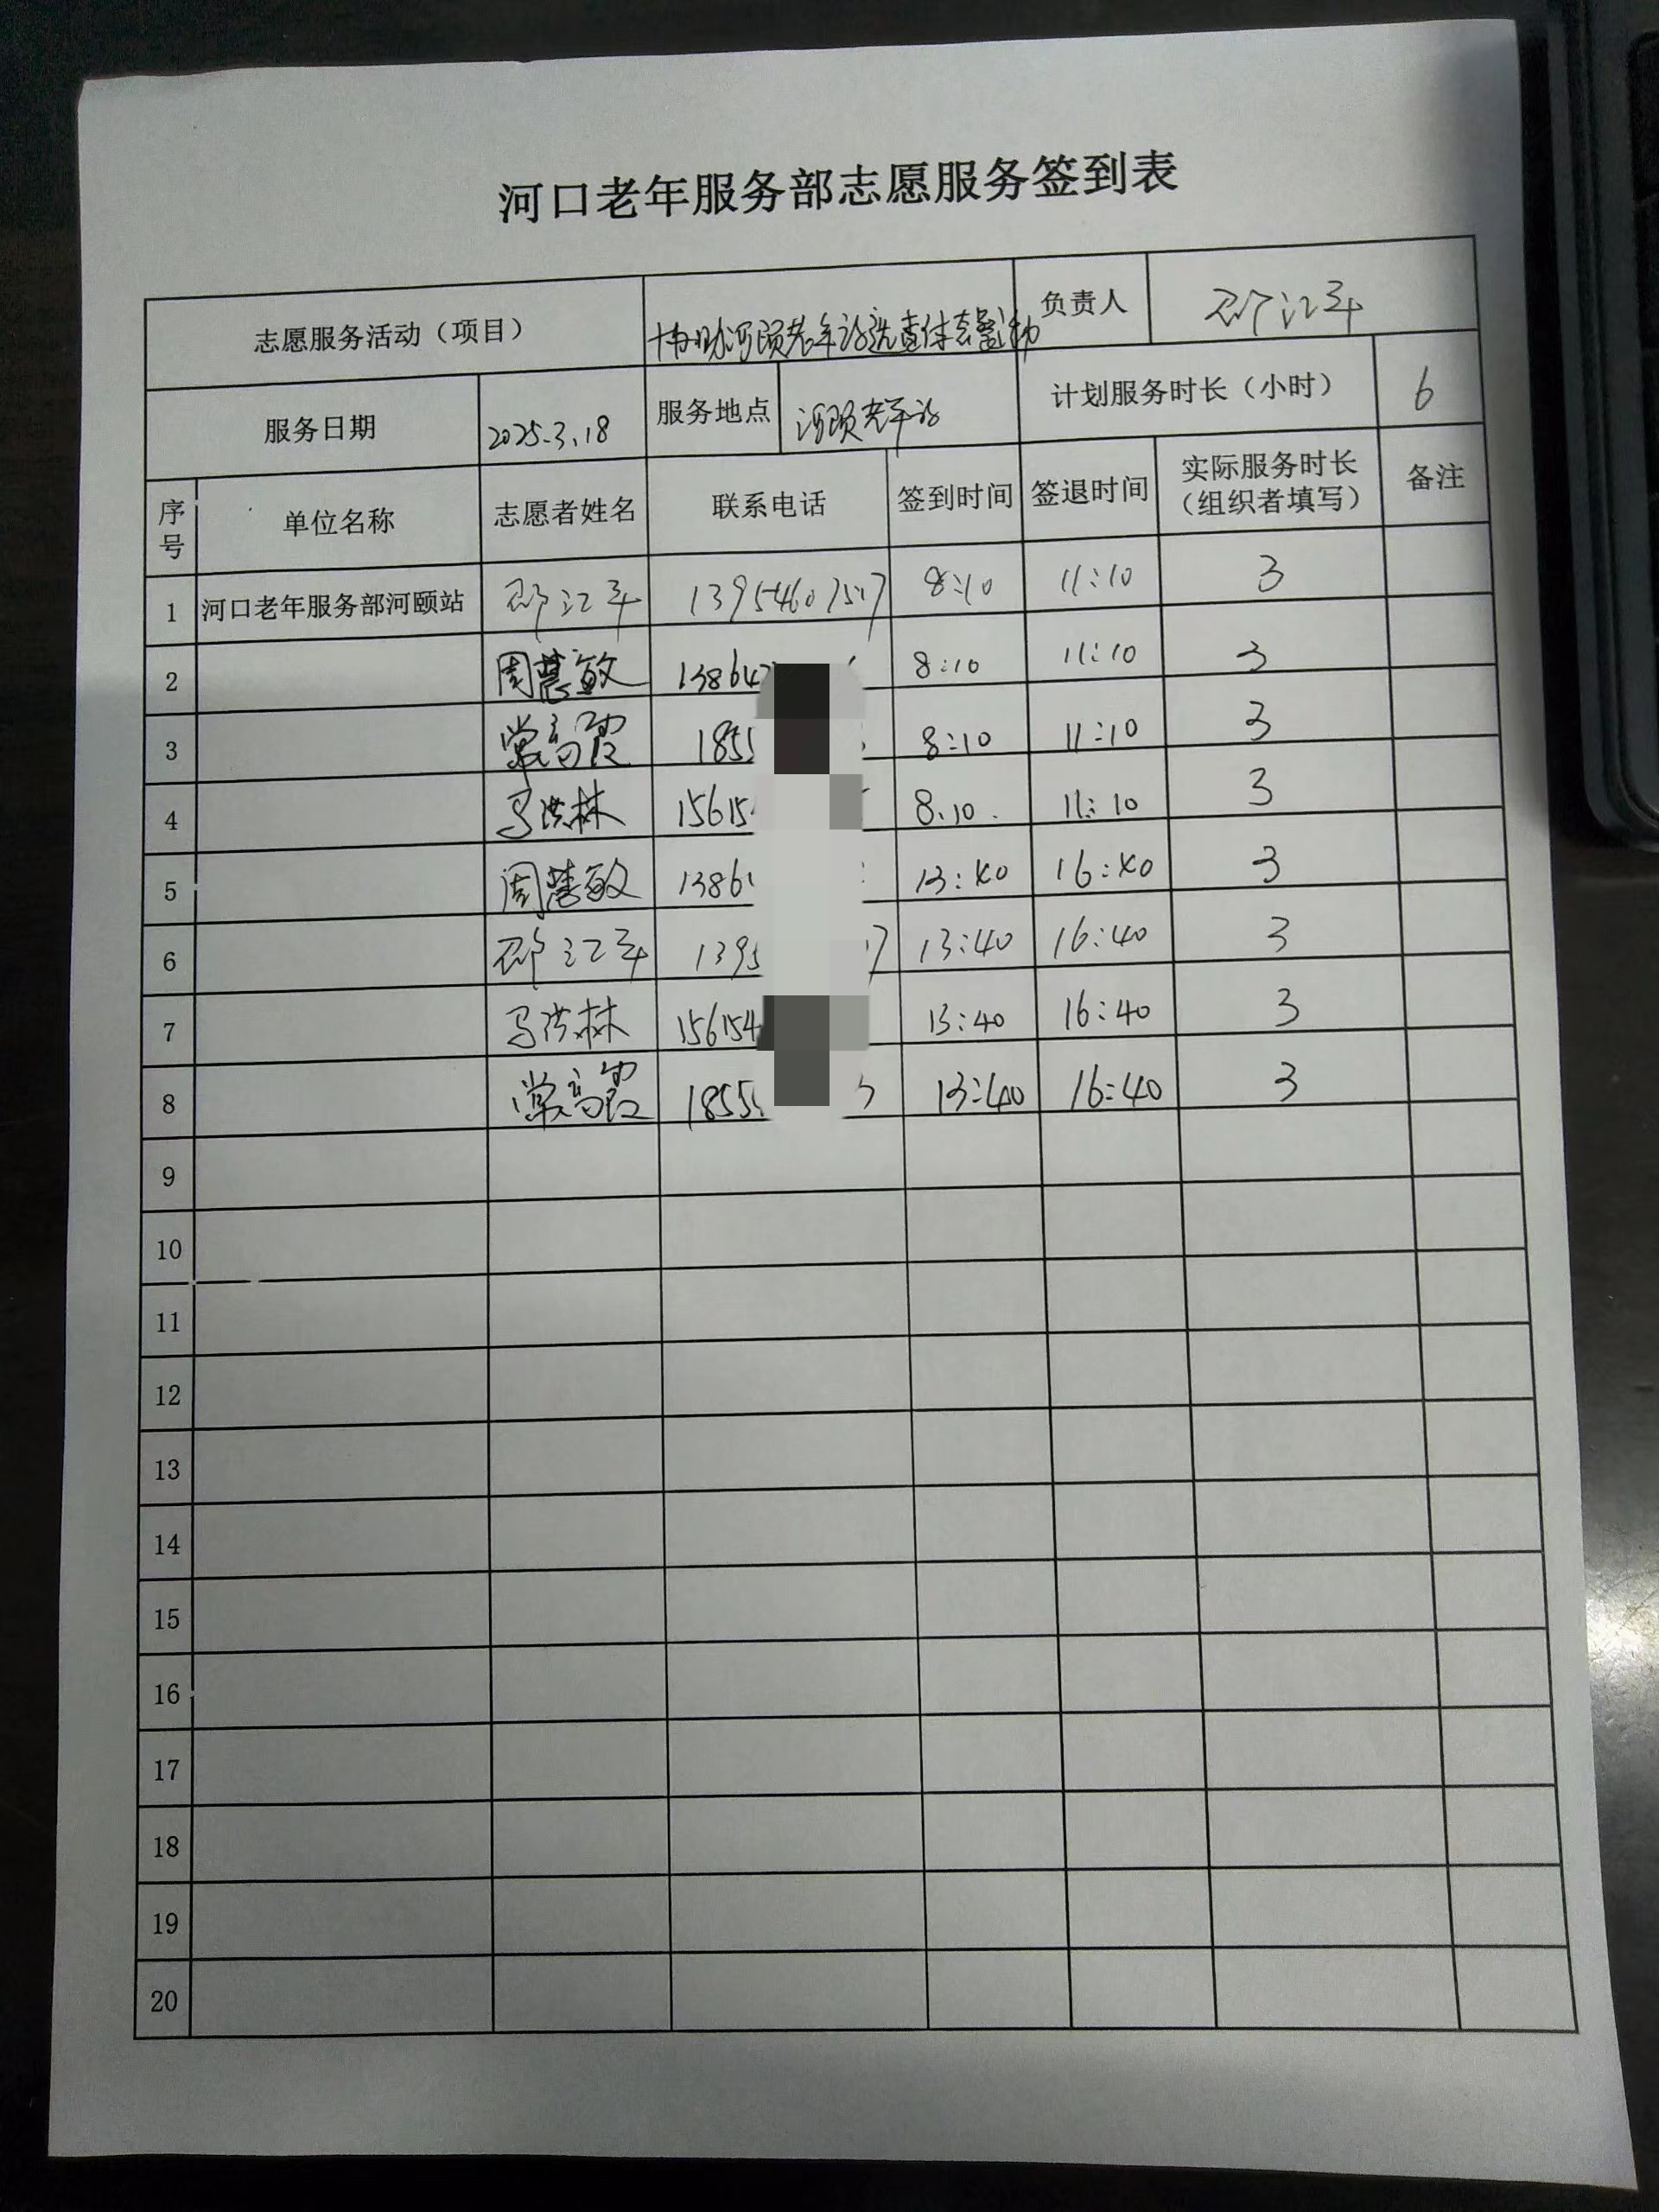 河口老年服务部志愿服务签到表
志愿服务活动（项目） 协助河颐老年站选查体套餐活动 负责人 邵江平
服务日期 2025.3.18 服务地点 河颐老年站 计划服务时长（小时） 6
序号 单位名称 志愿者姓名 联系电话 签到时间 签退时间 实际服务时长（组织者填写） 备注
1 河口老年服务部河颐站 邵江平 13954607517 8:10 11:10 3
2 周慧敏 13864 8:10 11:10 3
3 常高霞 1855 8:10 11:10 3
4 马洪林 15615 8.10. 11:10 3
5 周慧敏 1386 13:40 16:40 3
6 邵江平 1395 7 13:40 16:40 3
7 马洪林 156154 13:40 16:40 3
8 常高霞 1855 13:40 16:40 3
9
10
11
12
13
14
15
16
17
18
19
20